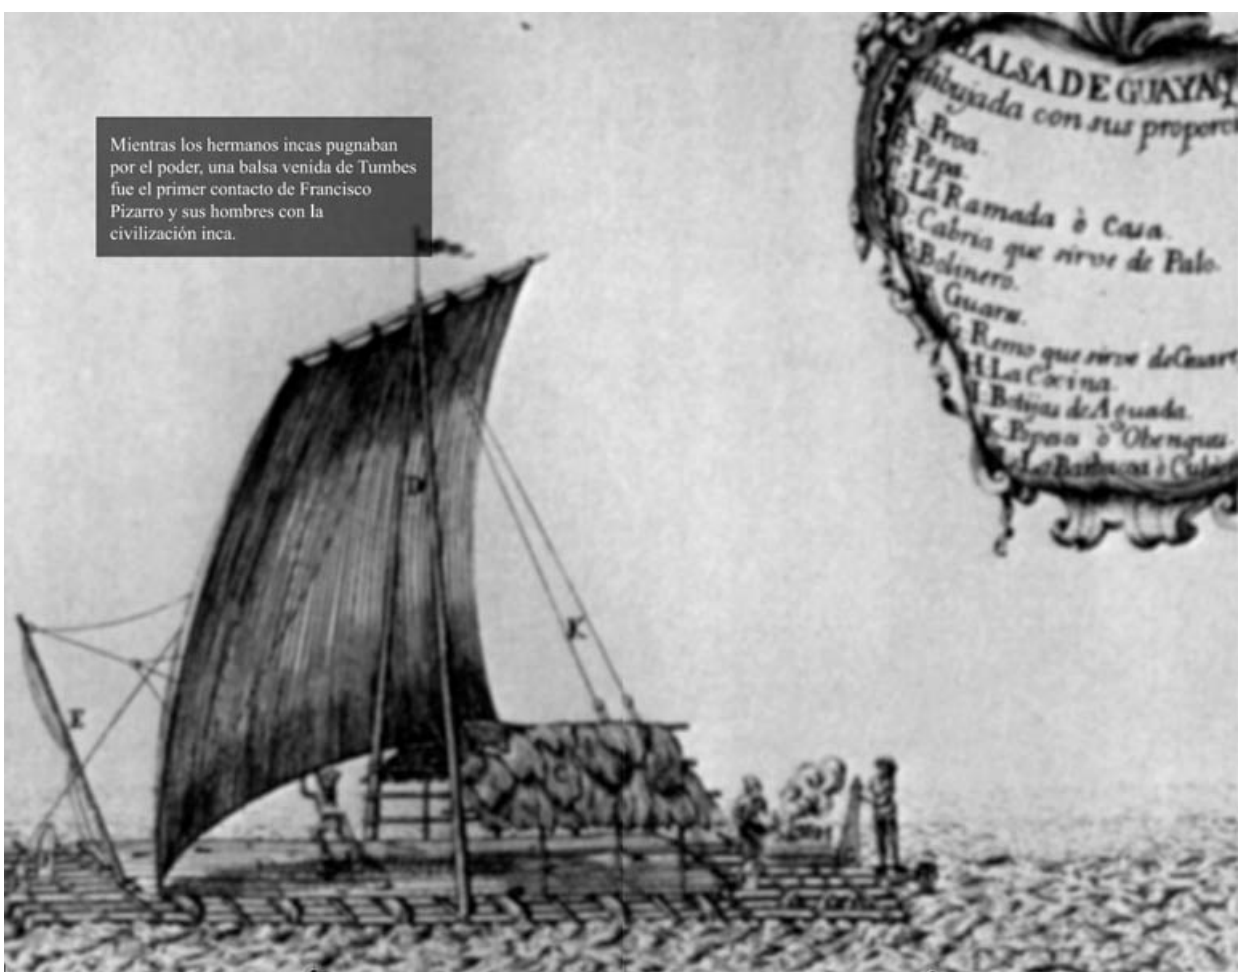 Mientras los hermanos incas pugnaban
por el poder, una balsa venida de Tumbes
fue el primer contacto de Francisco
Pizarro y sus hombres con la
civilización inca.
BALSA DE GUAYAQ
dibujada con sus proporci
A. Proa.
B. Popa.
C. La Ramada ò Casa.
D. Cabria que sirve de Palo.
E. Bolinero.
Guara.
G. Remo que sirve de Guare
H. La Cocina.
I. Botijas de Aguada.
K. Popeses ò Obenques
La Barbacoa ò Cubi
D
K
E
H